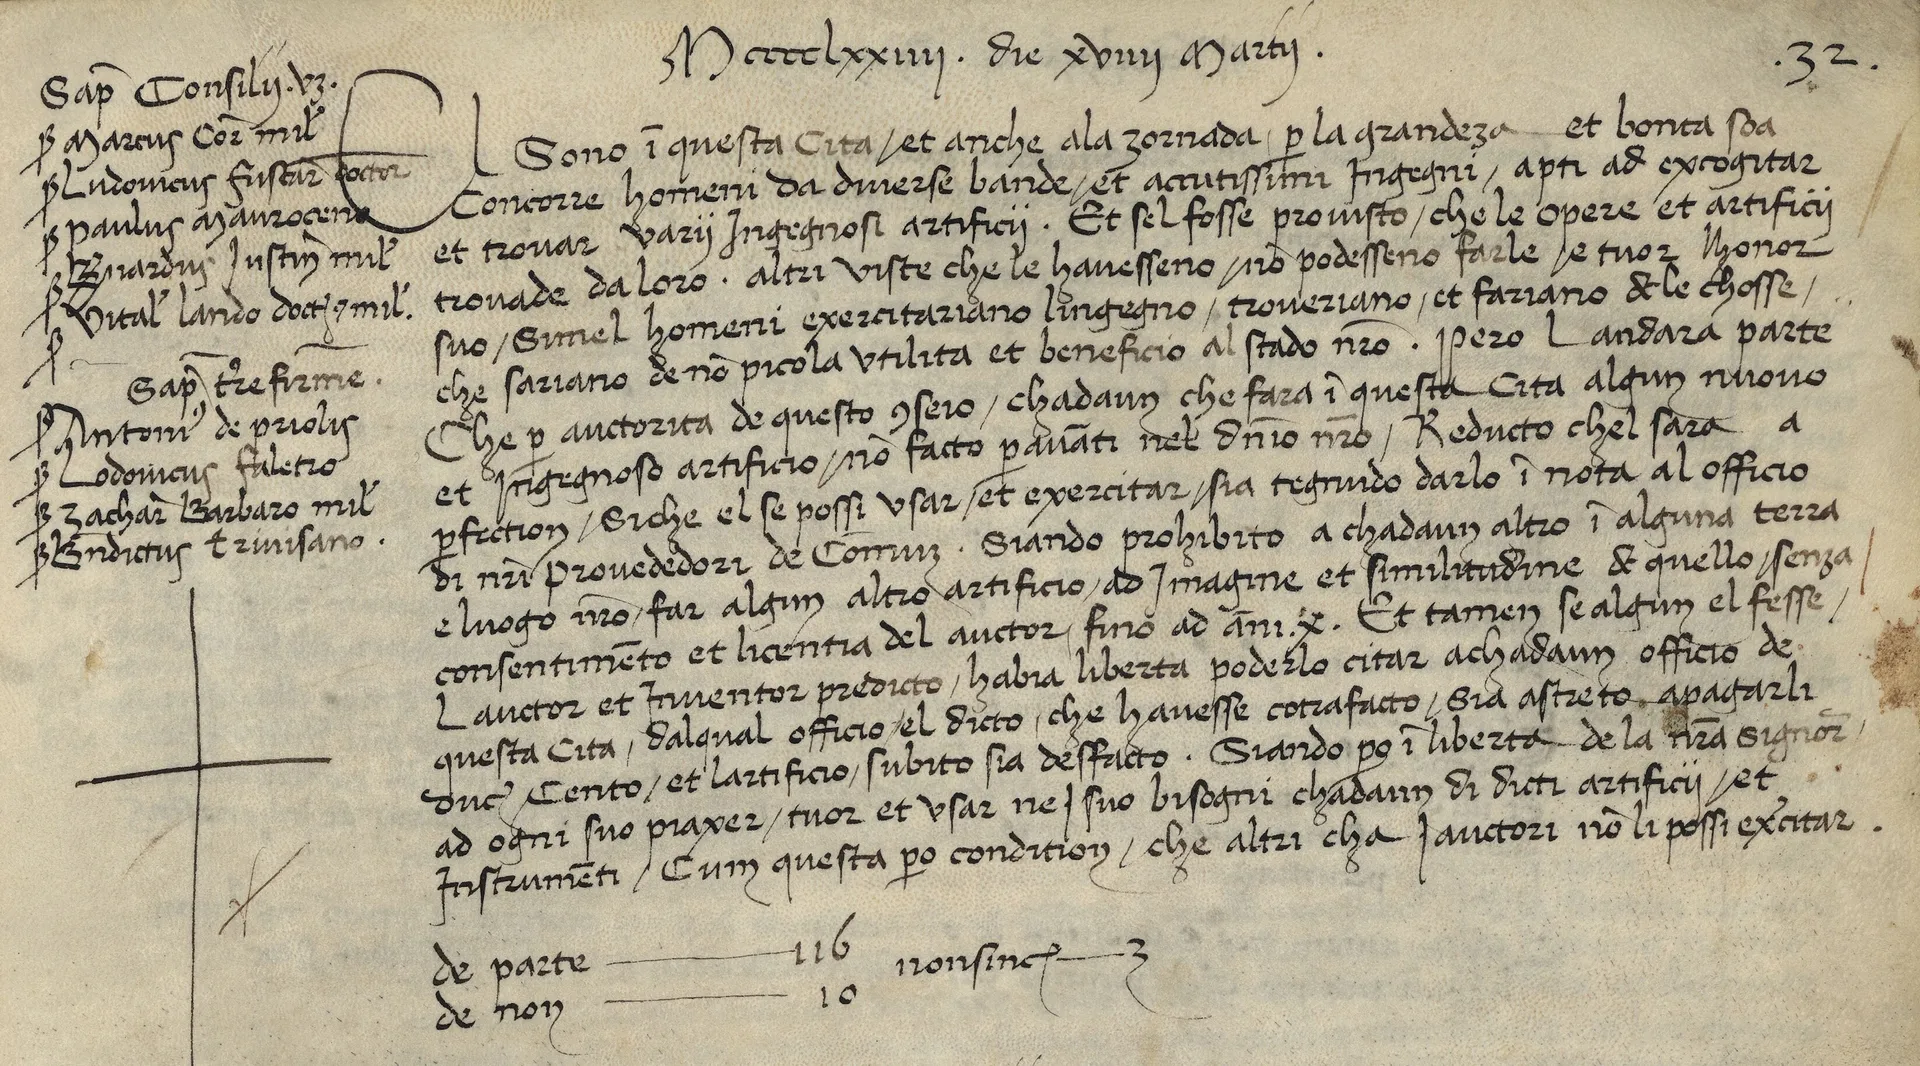 Mcccclxxiiii. die xviiii Martii.
.32.
Sap̄ Consilii. vꝫ.
ꝑ Marcus Cor̄ mil̄
ꝑ Ludovicus fuscar̄ doctor
ꝑ paulus Mauroceno
ꝑ Bn̄ardus Iustin̄ mil̄
ꝑ Vital̄ lando doct̄ ⁊ mil̄.
ꝑ
Sap̄ tr̄e firme.
ꝑ Antoniꝰ de priolis
ꝑ Lodovicus faletro
ꝑ Zachar̄ Barbaro mil̄
ꝑ Bn̄dictus trivisano.
El Sono ī questa Cita / et anche ala zornada ꝑ la grandeza et bonta soa
Concorre homeni da diverse bande / et accutissimi Ingegni / apti ad excogitar
et trovar varii Ingegnosi artificii. Et sel fosse provisto / che le opere et artificii
trovade da loro. altri viste che le havesseno / nō podesseno farle / e tuor lhonor
suo / Simel homeni exercitariano lingegno / troveriano / et fariano de le chosse /
che sariano de nō picola utilita et beneficio al stado nr̄o. Pero Landara parte
Che ꝑ auctorita de questo ꝯseio / chadaun che fara ī questa Cita algun nuovo
et Ingegnoso artificio / nō facto ꝑ avāti nel dn̄io nr̄o / Reducto chel sara a
ꝑfection / Siche el se possi usar / et exercitar / sia tegnudo darlo ī nota al officio
di nr̄i Provededori de Comun. Siando prohibito a chadaun altro ī alguna terra
e luogo nr̄o / far algun altro artificio / ad Imagine et similitudine de quello / senza
consentimēto et licentia del auctor / fino ad āni .x. Et tamen se algun el fesse /
Lauctor et Inventor predicto / habia liberta poderlo citar a chadaun officio de
questa Cita / dalqual officio / el dicto / che havesse cotrafacto / Sia astreto apagarli
duc̄ Cento / et lartificio / subito sia desfacto. Siando ꝑo ī liberta de la nr̄a Signor̄
ad ogni suo piaxer / tuor et usar nei suo bisogni chadaun di dicti artificii / et
Instrumēti / Cum questa ꝑo condition / che altri cha I auctori nō li possi exc̄itar.
de parte 116 nonsinc̄ 3
de non 10